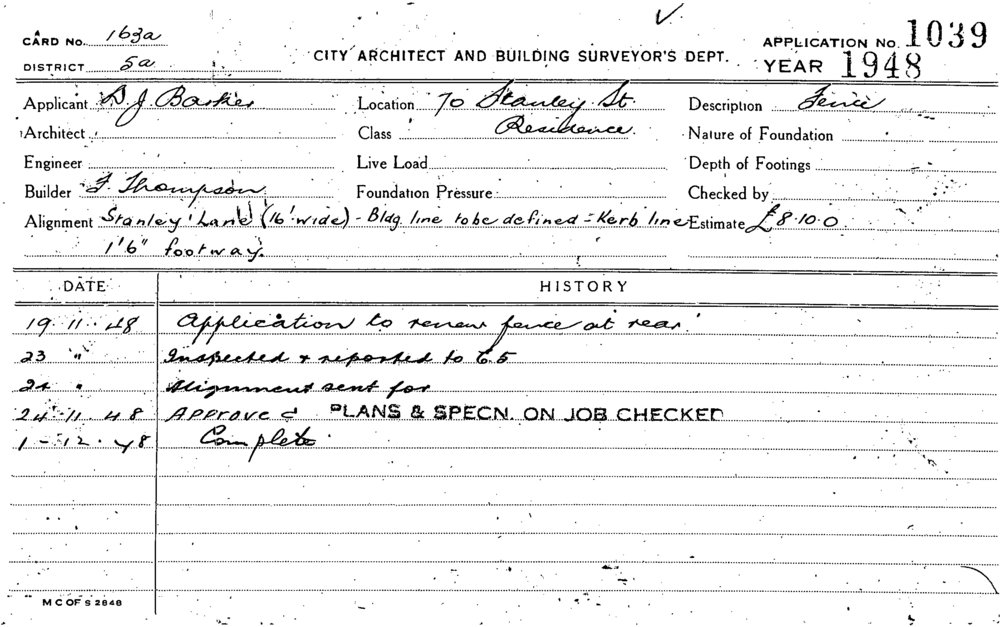 CARD No. 163a
DISTRICT 5a
CITY ARCHITECT AND BUILDING SURVEYOR'S DEPT.
APPLICATION No. 1039
YEAR 1948
Applicant D J Barker Location 70 Stanley St. Description Fence
Architect Class Residence Nature of Foundation
Engineer Live Load Depth of Footings
Builder F. Thompson Foundation Pressure Checked by
Alignment Stanley Lane (16' wide) - Bldg. line to be defined = Kerb line Estimate £8.10.0
1'6" footway.
DATE HISTORY
19.11.48 Application to renew fence at rear
23 " Inspected & reported to
24 " Alignment sent for
24.11.48 Approved PLANS & SPECN. ON JOB CHECKED
1-12.48 Complete
M C OF S 2848